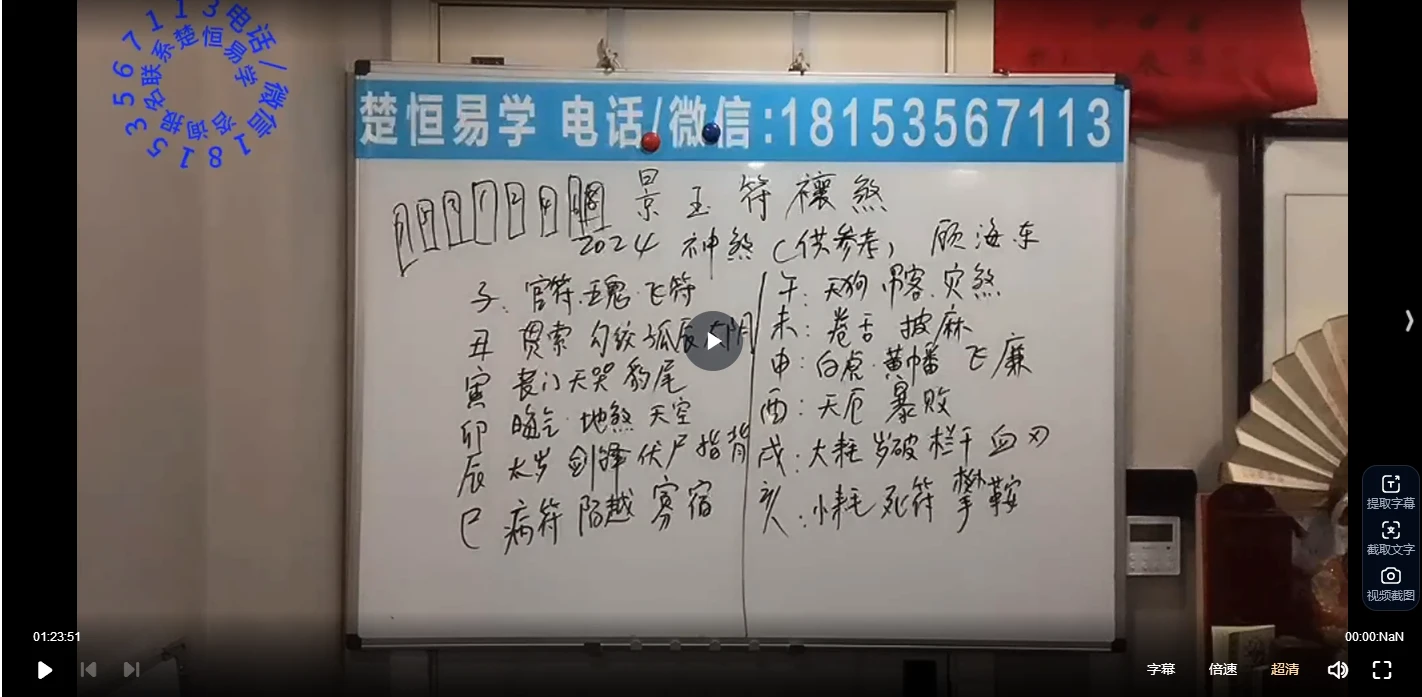 电话/微信18153567113
楚恒易学 咨询报名联系
楚恒易学 电话/微信:18153567113
景玉符禳煞
2024 神煞(供参考) 顾海东
子: 官符.五鬼.飞符
丑 贯索 勾绞 孤辰
寅 丧门 天哭 豹尾
卯 晦气.地煞 天空
辰 太岁 剑锋 伏尸 指背
巳 病符 陌越 寡宿
午: 天狗 吊客.灾煞
未: 卷舌 披麻
申: 白虎.黄幡 飞廉
酉: 天厄 暴败
戌: 大耗 岁破 栏干 血刃
亥: 小耗 死符 攀鞍
提取字幕
截取文字
视频截图
01:23:51
00:00:NaN
字幕 倍速 超清